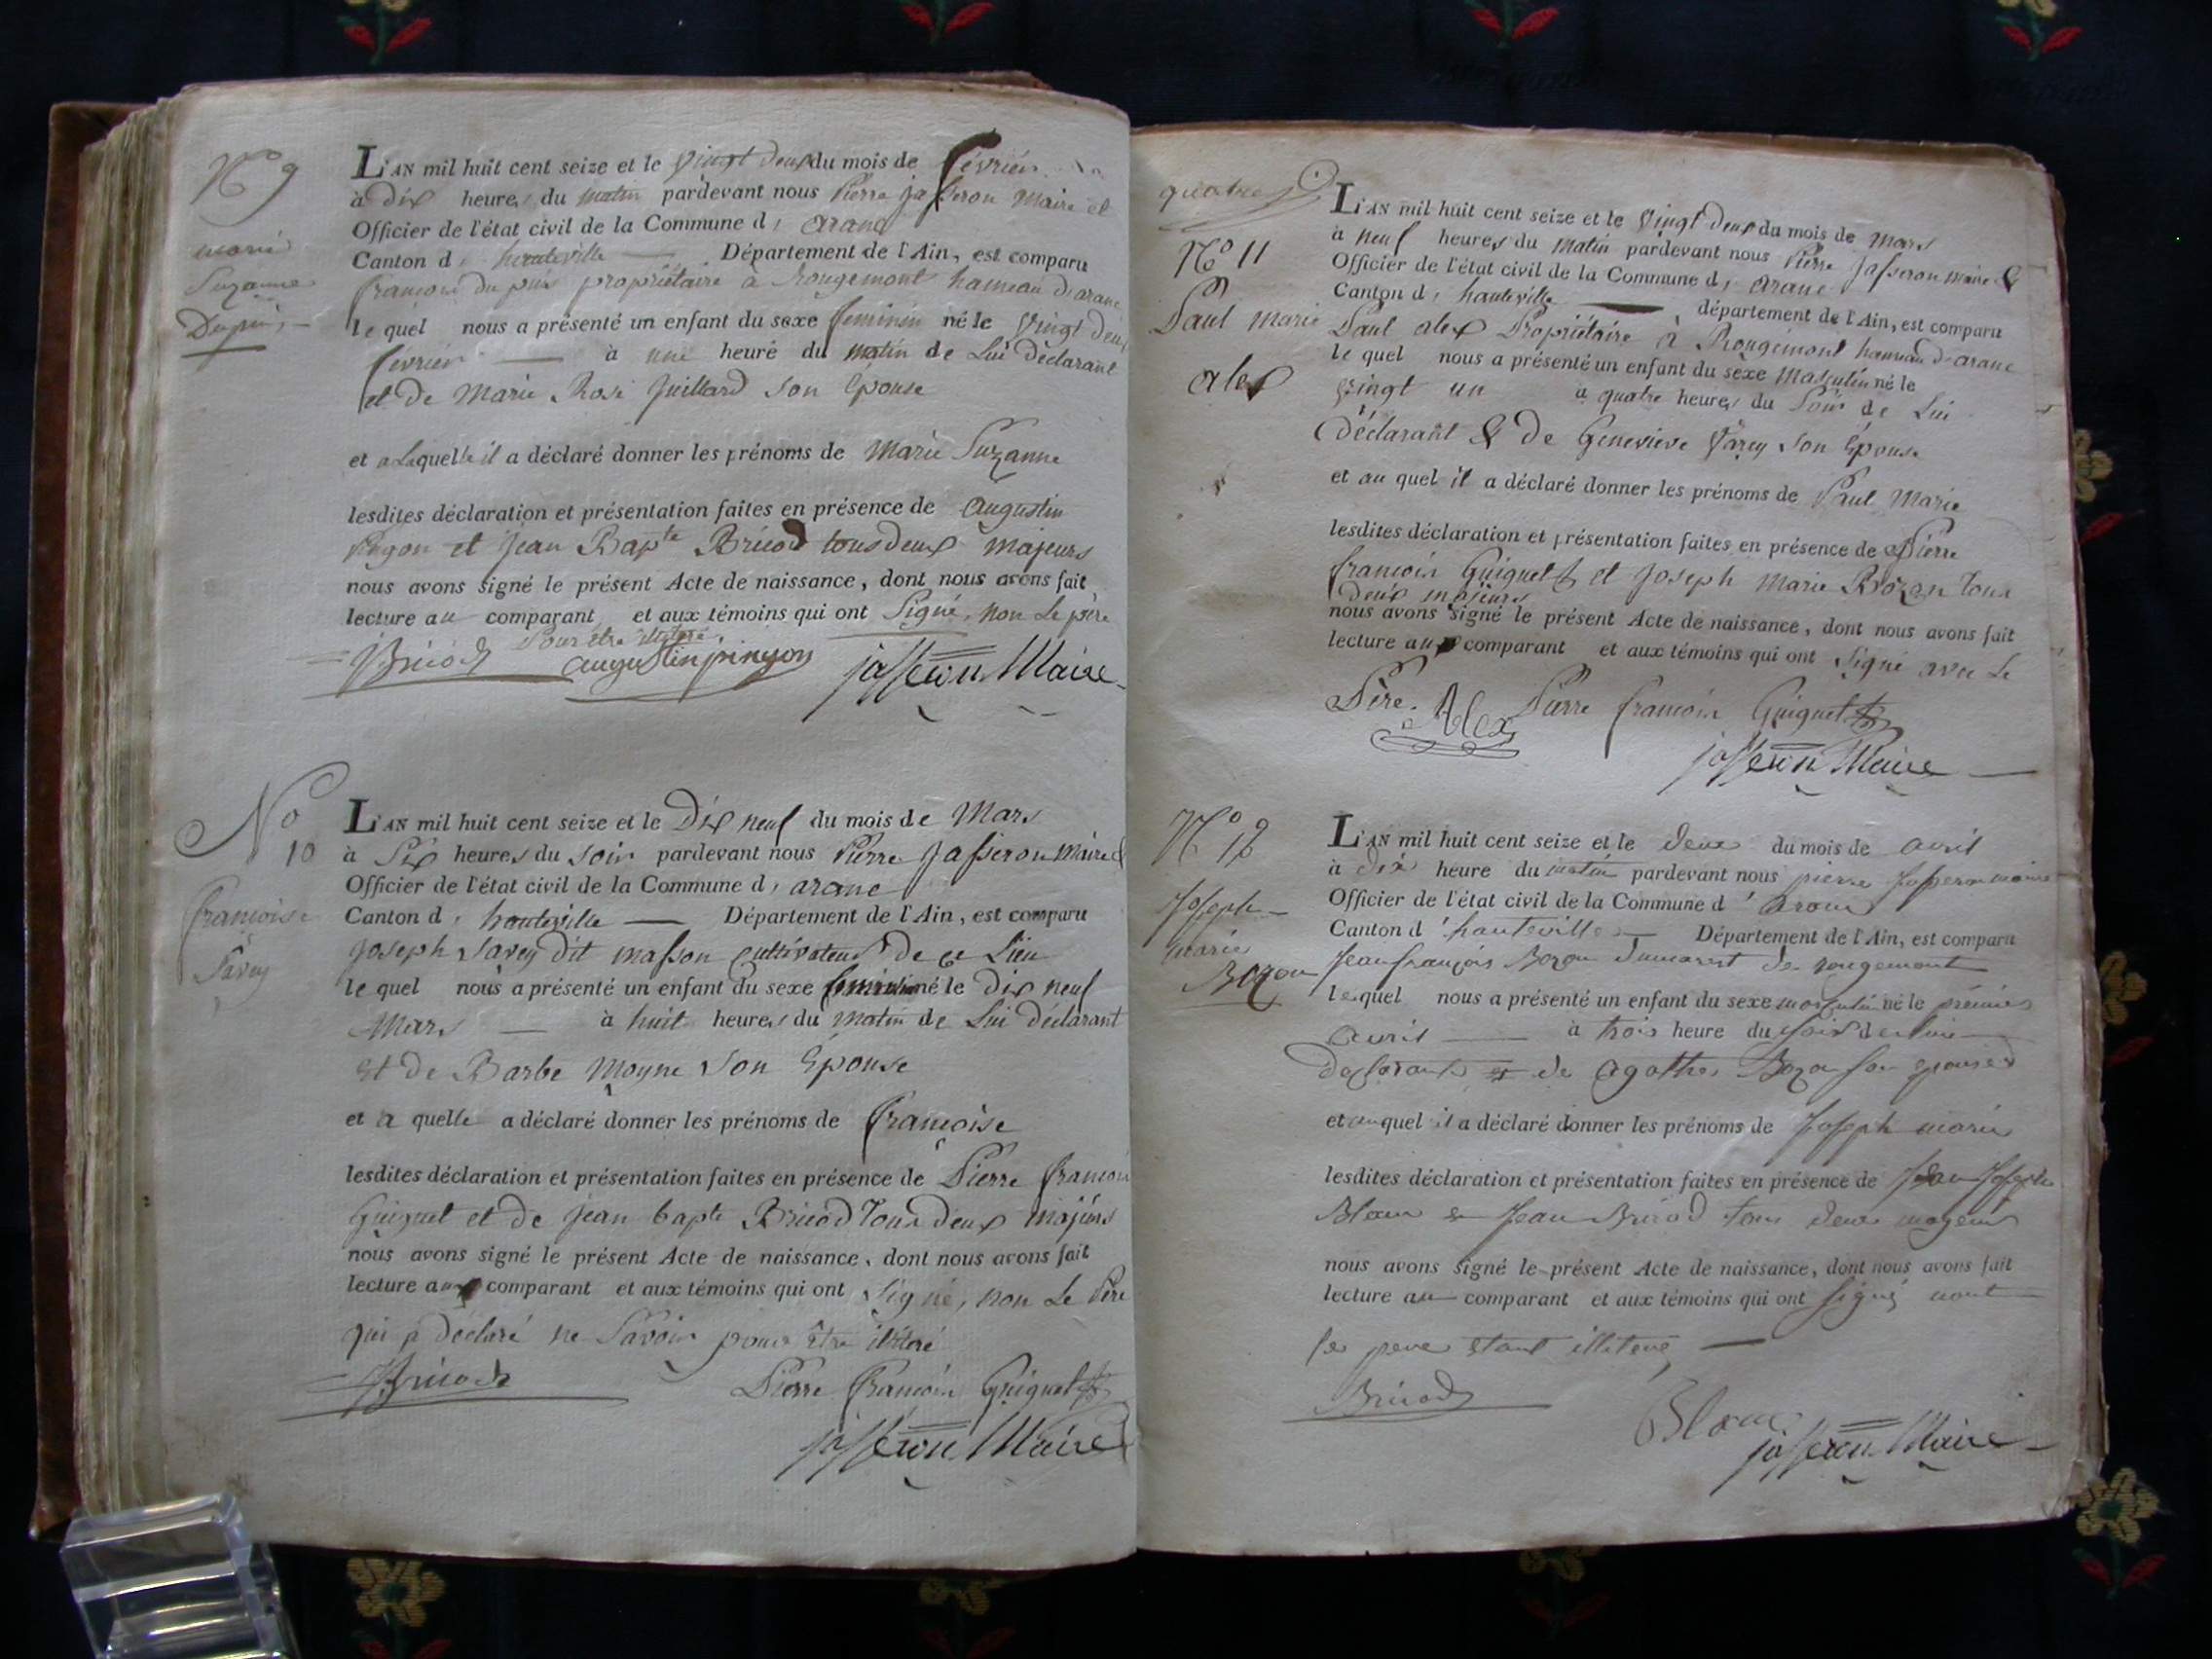 N.º 9
marie
Suzanne
Dupuis
L'AN mil huit cent seize et le vingt deux du mois de février
à dix heures du matin pardevant nous Pierre jasseron Maire et
Officier de l'état civil de la Commune d' arane
Canton d' hauteville Département de l'Ain, est comparu
francois Dupuis propriétaire à Rougemont hameau d'arane
le quel nous a présenté un enfant du sexe feminin né le vingt deux
fevrier à une heure du matin de Lui Déclarant
et de Marie Rose Juillard son Epouse
et a Laquelle il a déclaré donner les prénoms de Marie Suzanne
lesdites déclaration et présentation faites en présence de Augustin
Pingon et Jean Bapte Bricod tous deux majeurs
nous avons signé le présent Acte de naissance, dont nous avons fait
lecture au comparant et aux témoins qui ont Signé, non Le père
Pour être illiteré.
Bricod augustin pingon jasseron Maire
No
10
francoise
Savey
L'AN mil huit cent seize et le Dix neuf du mois de Mars
à Six heures du soir pardevant nous Pierre Jasseron Maire &
Officier de l'état civil de la Commune d' arane
Canton d' hauteville Département de l'Ain, est comparu
Joseph Savey dit masson cultivateur de ce Lieu
le quel nous a présenté un enfant du sexe feminin né le Dix neuf
Mars à huit heures du matin de Lui déclarant
Et de Barbe Moyne Son Epouse
et a quelle a déclaré donner les prénoms de francoise
lesdites déclaration et présentation faites en présence de Pierre francois
Guiguet et de Jean bapte Bricod Tous deux majeurs
nous avons signé le présent Acte de naissance, dont nous avons fait
lecture au comparant et aux témoins qui ont Signé, non Le Père
qui a déclaré ne Savoir pour être illiteré
Bricod Pierre francois Guiguet
jasseron Maire
quatre
Nº 11
Paul Marie
alex
L'AN mil huit cent seize et le vingt deux du mois de Mars
à neuf heures du matin pardevant nous Pierre Jasseron maire &
Officier de l'état civil de la Commune d' arane
Canton d' hauteville, département de l'Ain, est comparu
Paul alex Propriétaire à Rougemont hameau d'arane
le quel nous a présenté un enfant du sexe masculin né le
vingt un à quatre heures du Soir de Lui
déclarant & de Genevieve Savey Son Epouse
et au quel il a déclaré donner les prénoms de Paul Marie
lesdites déclaration et présentation faites en présence de Pierre
francois Guiguet et Joseph Marie Bozon Tous
deux majeurs
nous avons signé le présent Acte de naissance, dont nous avons fait
lecture au comparant et aux témoins qui ont Signé avec Le
Père. Alex Pierre francois Guiguet
jasseron Maire
Nº 12
Joseph
marie
Bozon
L'AN mil huit cent seize et le deux du mois de avril
à dix heure du matin pardevant nous pierre Jasseron maire
Officier de l'état civil de la Commune d' arane
Canton d' hauteville Département de l'Ain, est comparu
Jean françois Bozon dumarest de rougemont
lequel nous a présenté un enfant du sexe masculin né le premier
avril à trois heure du soir de luie
declarant et de agathe Bozon son epouse
et auquel il a déclaré donner les prénoms de Joseph marie
lesdites déclaration et présentation faites en présence de Jean Joseph
Blanc et Jean Bricod tous deux mageurs
nous avons signé le présent Acte de naissance, dont nous avons fait
lecture au comparant et aux témoins qui ont signé nont
le pere etant illiteré
Bricod Blanc
jasseron Maire